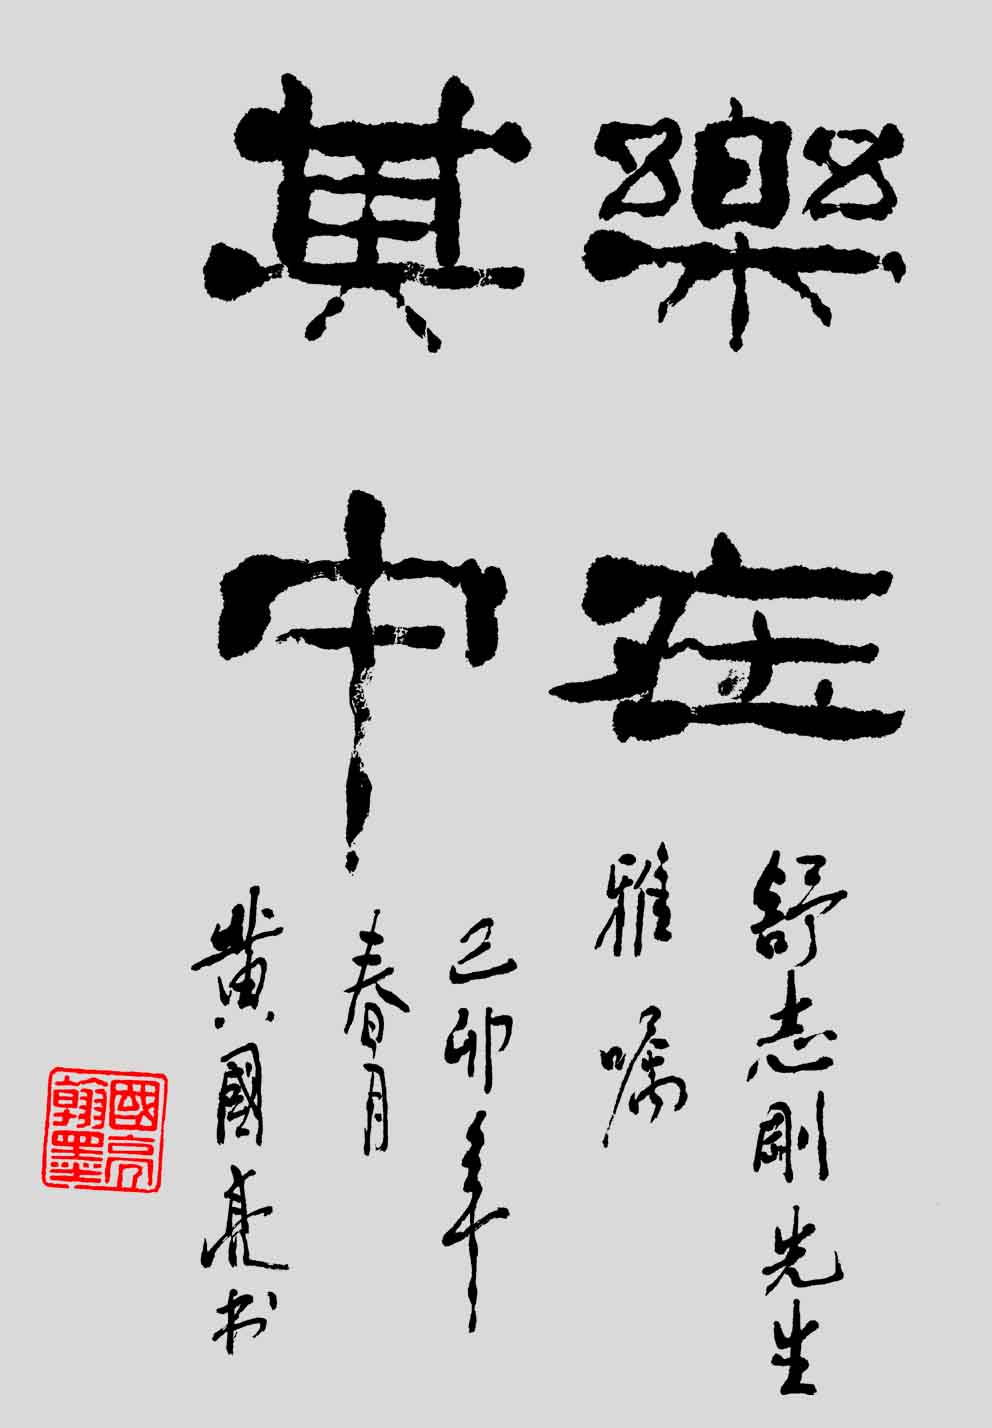 樂在
其中
舒志剛先生
雅嘱
己卯年
春月
黄國亮书
國亮
翰墨